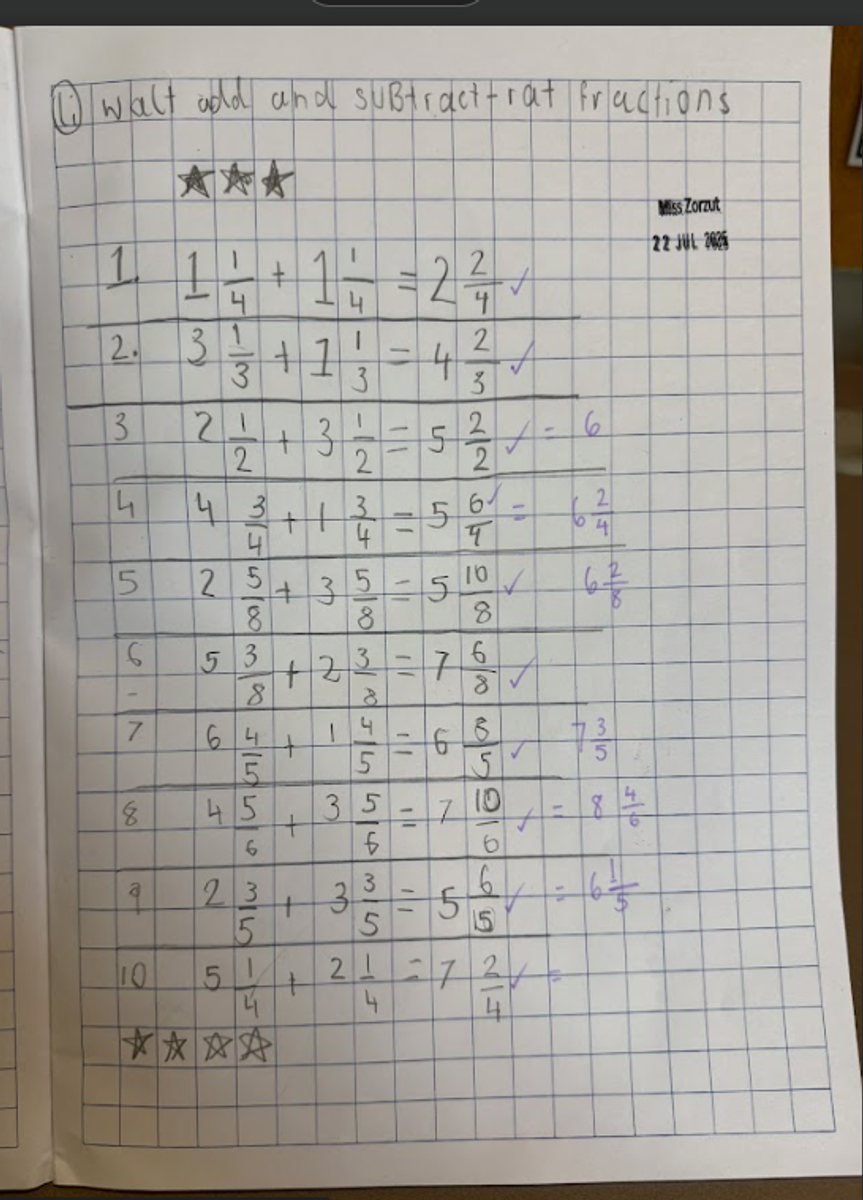 Li walt add and suBtract trat fractions
Miss Zorzut
22 JUL 2025
1. 1 1/4 + 1 1/4 = 2 2/4 ✓
2. 3 1/3 + 1 1/3 = 4 2/3 ✓
3 2 1/2 + 3 1/2 = 5 2/2 ✓ = 6
4 4 3/4 + 1 3/4 = 5 6/4 ✓ = 6 2/4
5 2 5/8 + 3 5/8 = 5 10/8 ✓ 6 2/8
6 5 3/8 + 2 3/8 = 7 6/8 ✓
7 6 4/5 + 1 4/5 = 6 8/5 ✓ 7 3/5
8 4 5/6 + 3 5/6 = 7 10/6 ✓ = 8 4/6
9 2 3/5 + 3 3/5 = 5 6/5 ✓ = 6 1/5
10 5 1/4 + 2 1/4 = 7 2/4 ✓ =